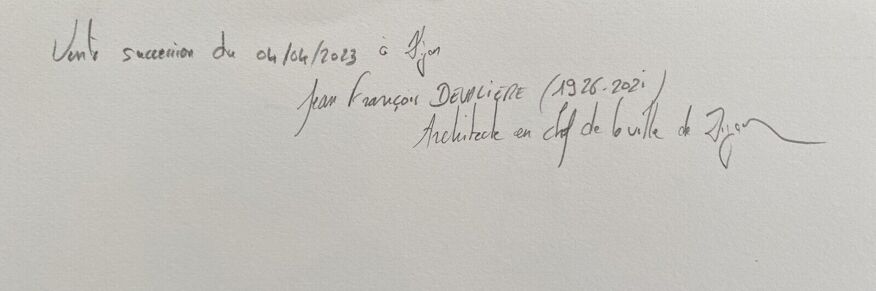 Vente succession du 04/04/2023 à Dijon
Jean François DEVALIÈRE (1926-2021)
Architecte en chef de la ville de Dijon